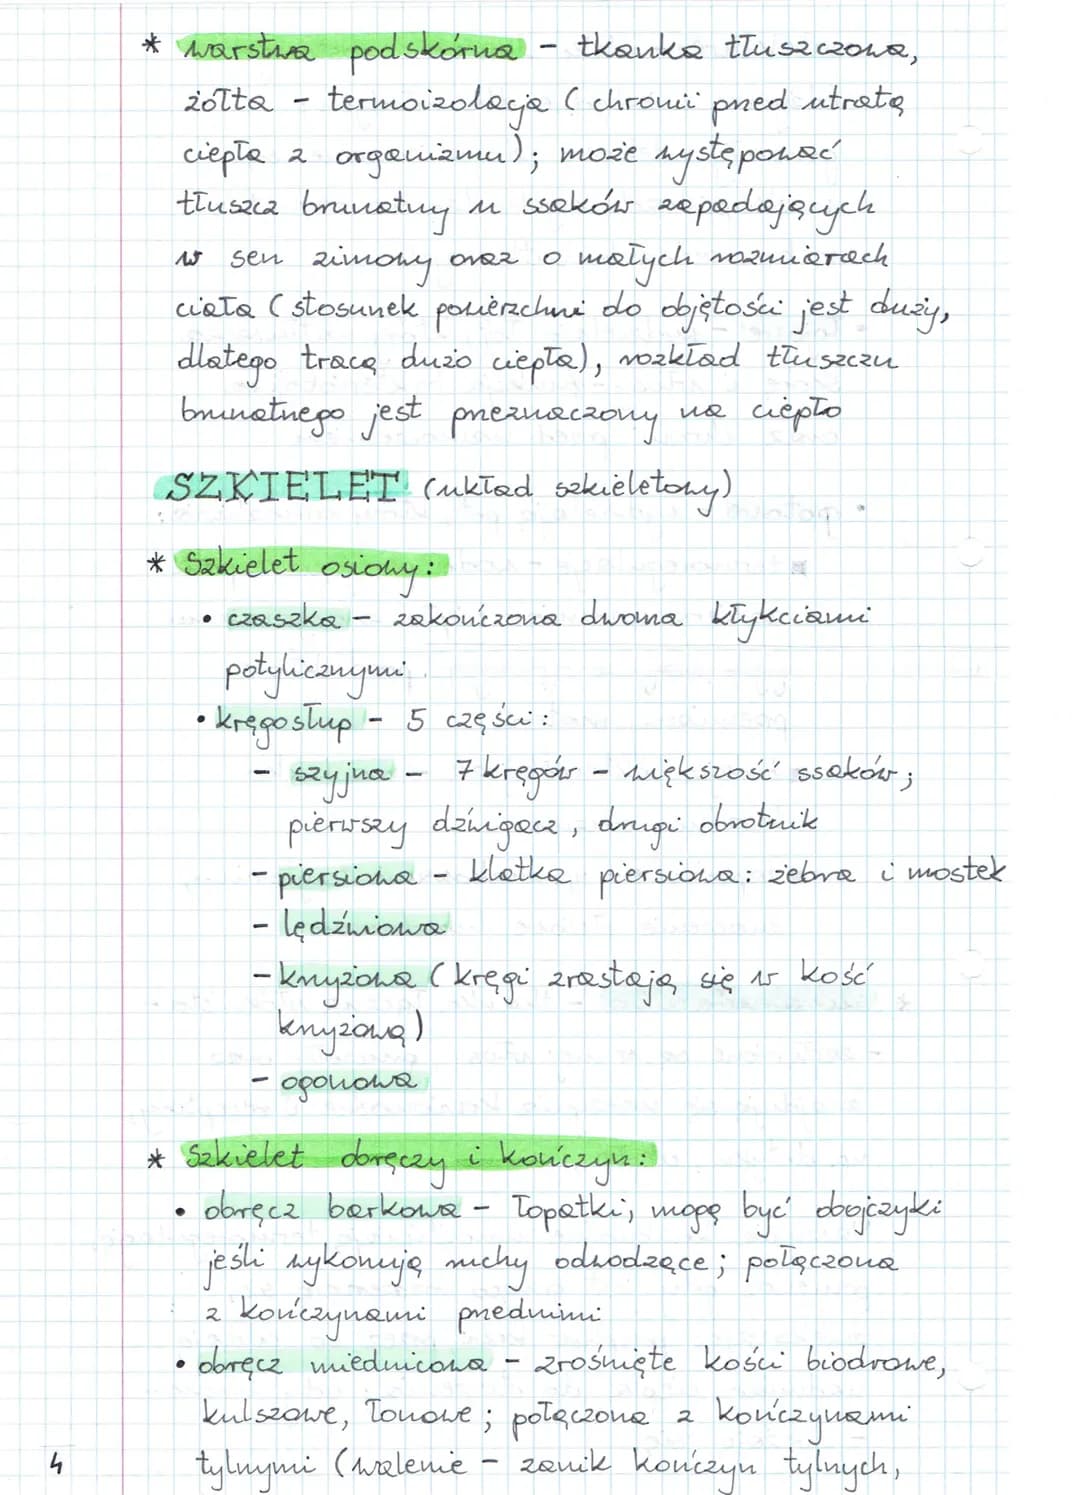 * warstwa podskórna - tkanka tłuszczowa,
żółta - termoizolacja (chroni przed utratą
ciepła z organizmu); może występować
tłuszcz brunatny u ssaków zapadających
w sen zimowy oraz o małych rozmiarach
ciała (stosunek powierzchni do objętości jest duży,
dlatego tracą dużo ciepła), rozkład tłuszczu
brunatnego jest przeznaczony na ciepło
SZKIELET (układ szkieletowy)
* Szkielet osiowy:
• czaszka - zakończona dwoma kłykciami
potylicznymi
• kręgosłup - 5 części:
- szyjna - 7 kręgów - większość ssaków;
pierwszy dźwigacz, drugi obrotnik
- piersiowa - klatka piersiowa: żebra i mostek
- lędźwiowa
- krzyżowa (kręgi zrastają się w kość
krzyżową)
- ogonowa
* Szkielet obręczy i kończyn:
• obręcz barkowa - łopatki; mogą być obojczyki
jeśli wykonują ruchy odwodzące; połączona
z kończynami przednimi
• obręcz miednicowa - zrośnięte kości biodrowe,
kulszowe, łonowe; połączona z kończynami
4 tylnymi (walenie - zanik kończyn tylnych,